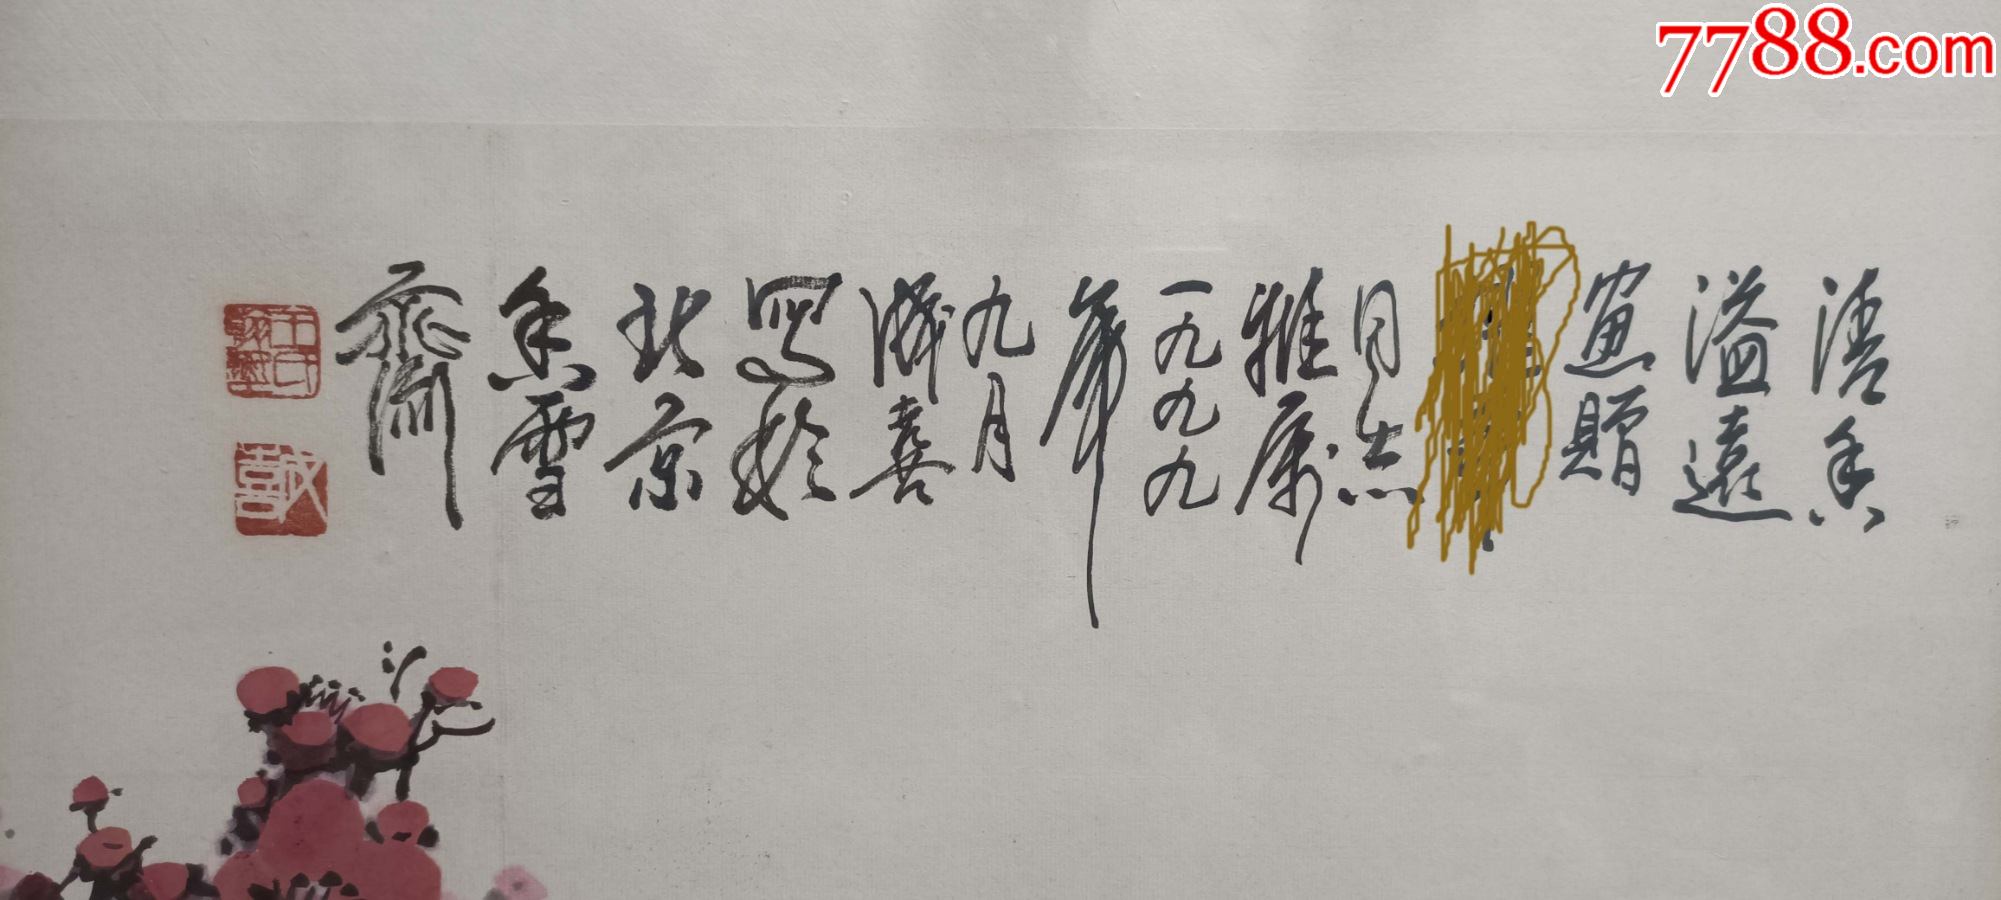 7788.com
清香
溢遠
画贈
同志
雅属
一九九九
年
九月
誠喜
寫於
北京
香雪
齋
誠喜